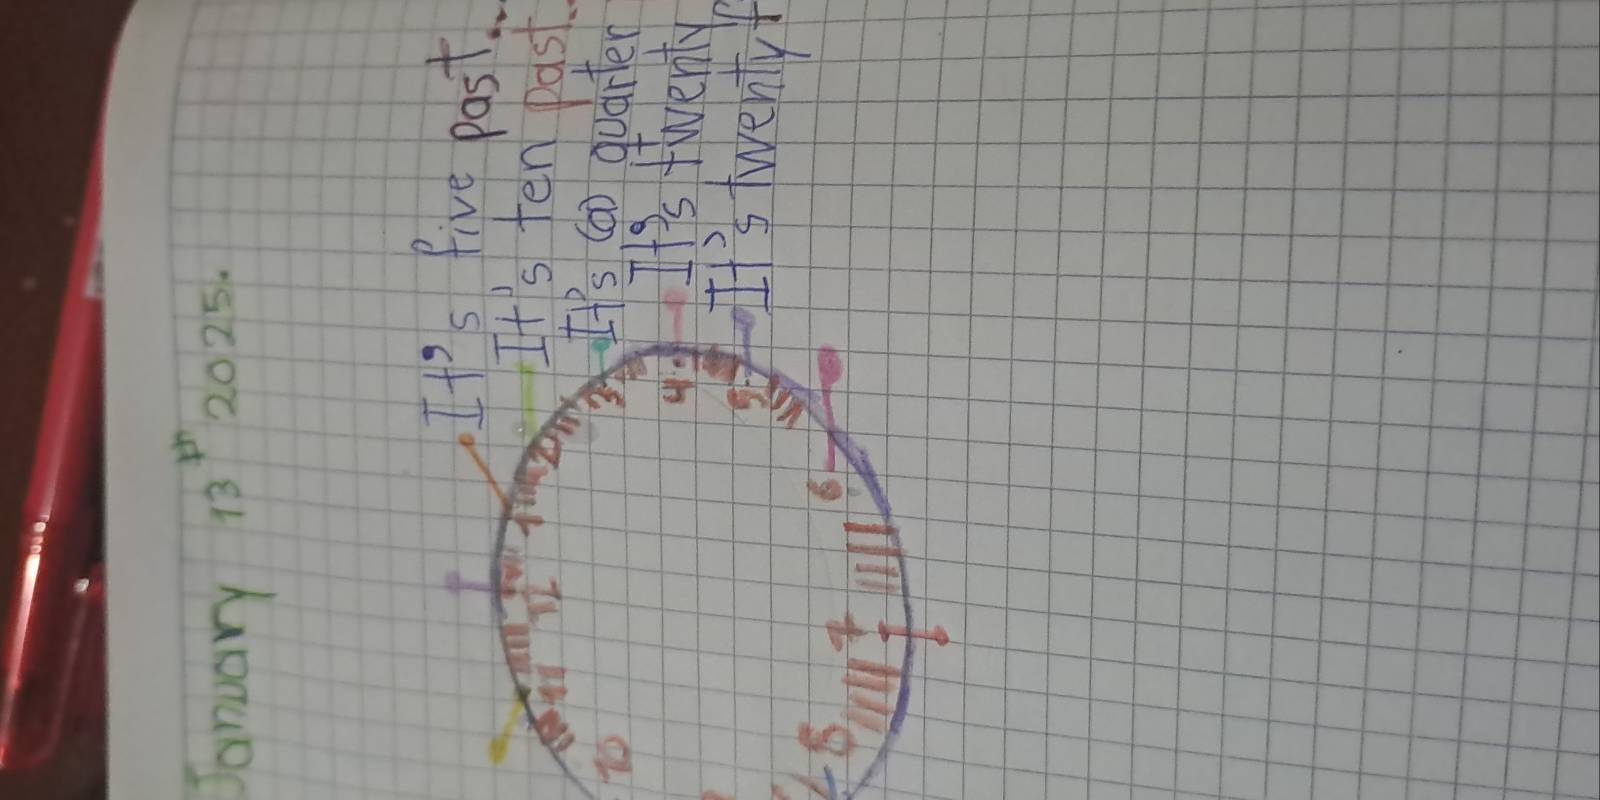 January 13th 2025.
It's five past...
It's ten past..
It's (a) quarter
It's twenty
It's twenty
12
1
2
3
4
5
6
7
8
10
11